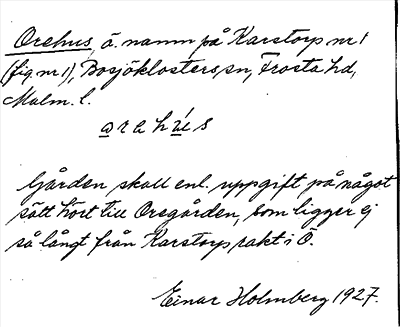 Orehus, ä. namn på Karstorp nr 1
(fig. nr 1), Bosjöklosters sn, Frosta hd,
Malm. l.
a r a h ú s
Gården skall enl. uppgift på något
sätt hört till Oregården, som ligger ej
så långt från Karstorp rakt i Ö.
Einar Holmberg 1927.